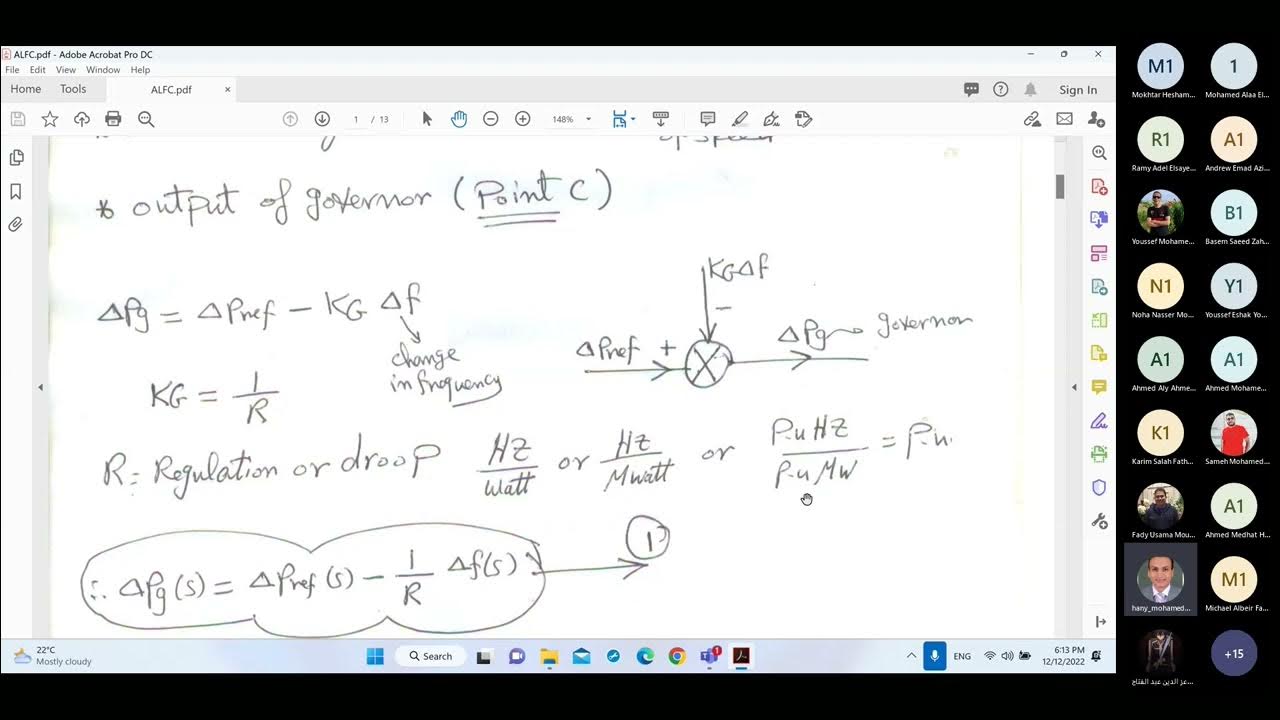 ALFC.pdf - Adobe Acrobat Pro DC
File Edit View Window Help
Home Tools ALFC.pdf × Sign In
1 / 13 148%
of speed
* output of governor (Point C)
ΔPg = ΔPref - KG Δf
change
in frequency
KGΔf
-
ΔPref + ΔPg → governor
KG = 1/R
R = Regulation or droop HZ/Watt or HZ/Mwatt or P.u HZ/P.u MW = P.u
∴ ΔPg(s) = ΔPref(s) - 1/R Δf(s) → 1
22°C
Mostly cloudy
Search
1
ENG
6:13 PM
12/12/2022
M1 1
Mokhtar Hesham... Mohamed Alaa El...
R1 A1
Ramy Adel Elsaye... Andrew Emad Azi...
B1
Youssef Mohame... Basem Saeed Zah...
N1 Y1
Noha Nasser Mo... Youssef Eshak Yo...
A1 A1
Ahmed Aly Ahme... Ahmed Mohame...
K1
Karim Salah Fath... Sameh Mohamed...
A1
Fady Usama Mou... Ahmed Medhat H...
M1
hany_mohamed... Michael Albeir Fa...
+15
عز الدين عبد الفتاح...